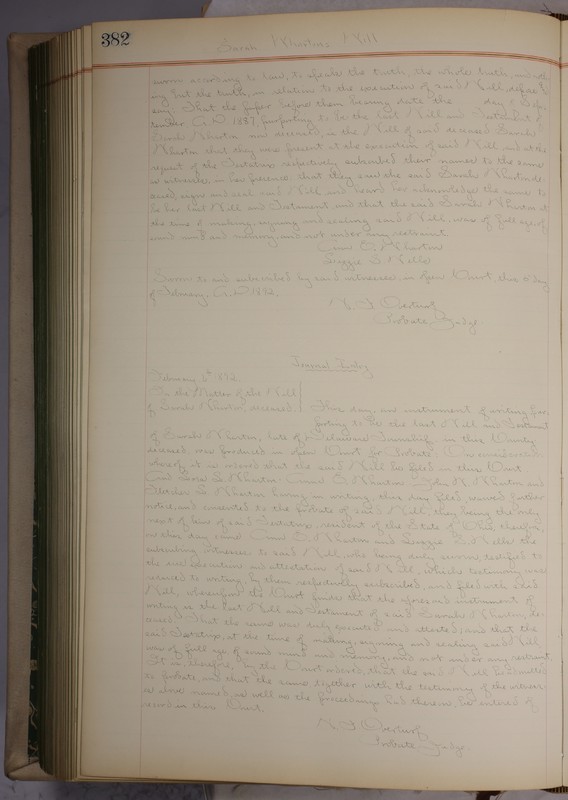 382
Sarah Wharton's Will
sworn according to law, to speak the truth, the whole truth, and noth
ing but the truth, in relation to the execution of said Will depose &
say: That the paper before them bearing date the day of Sep
tember A.D. 1887, purporting to be the last Will and Testament of
Sarah Wharton now deceased, is the Will of said deceased Sarah
Wharton that they were present at the execution of said Will, and at the
request of the Testatrix, respectively subscribed their names to the same
as witnesses, in her presence; that they saw the said Sarah Wharton de-
ceased, sign and seal said Will and heard her acknowledge the same to
be her last Will and Testament and that the said Sarah Wharton at
the time of making, signing and sealing said Will, was of full age, of
sound mind and memory, and not under any restraint.
O. Wharton
S. Wells
Sworn to and subscribed by said witnesses in open Court, this 6 day
of February, A.D. 1892.
Probate Judge
Journal Entry
February 6th 1892
In the Matter of the Will
of Sarah Wharton, deceased. This day, an instrument of writing pur
porting to be the last Will and Testament
of Sarah Wharton, late of Delaware Township, in this County
deceased, was produced in open Court for Probate. On consideration
whereof, it is ordered that the said Will be filed in this Court.
And S. Wharton, O. Wharton, John Wharton and
S. Wharton having in writing, this day filed waived further
notice, and consented to the probate of said Will, they being the only
next of kin of said Testatrix, resident of the State of Ohio, therefore,
on this day, came O. Wharton and S. Wells the
subscribing witnesses to said Will, who being duly sworn, testified to
the due execution and attestation of said Will, which testimony was
reduced to writing, by them respectively subscribed, and filed with said
Will, whereupon the Court finds that the aforesaid instrument of
writing is the last Will and Testament of said Sarah Wharton, de
ceased. That the same was duly executed and attested, and that the
said Testatrix, at the time of making, signing and sealing said Will
was of full age of sound mind and memory, and not under any restraint.
It is, therefore, by the Court ordered, that the said Will be admitted
to probate, and that the same together with the testimony of the witness-
es above named, as well as the proceedings had therein, be entered of
record in this Court.
Probate Judge